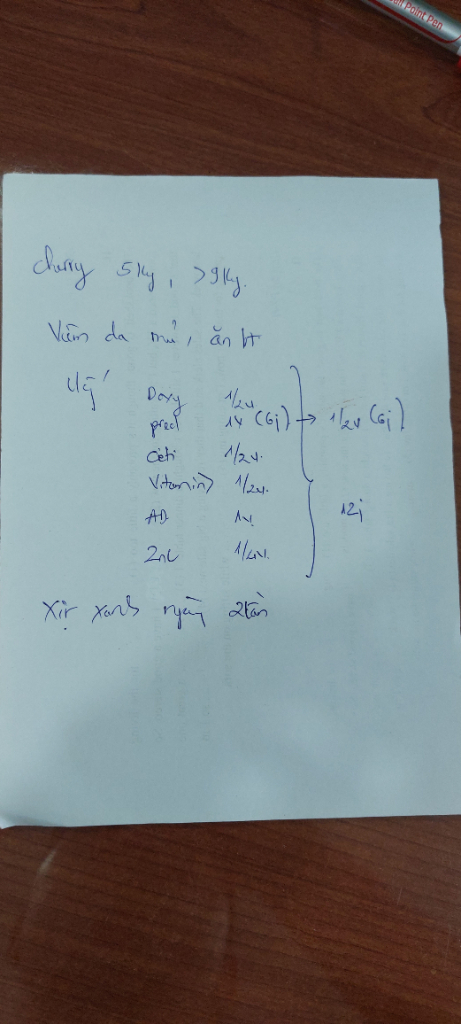 Ball Point Pen
cherry 5kg, >9kg.
Viêm da mủ, ăn bt
Doxy 1/2v.
pred 1v (6j) → 1/2v (6j)
Ceti 1/2v.
Vitamin 1/2v.
AD 1v.
Znc 1/4v.
12j
Xịt xanh ngày 2 lần